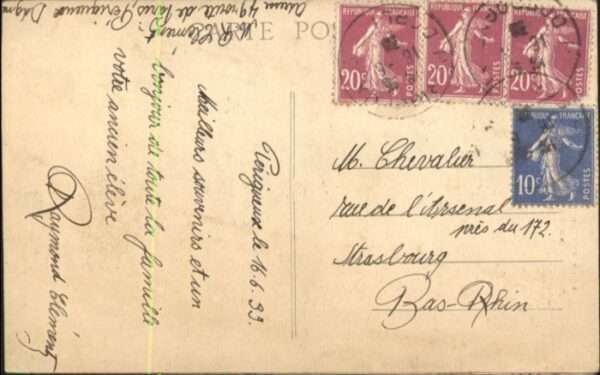 CARTE POSTALE
Périgueux le 16.6.33.
Meilleurs souvenirs et un
bonjour de toute la famille
votre ancien élève
Raymond Clément
R. Clément
49 route de Paris, Périgueux
REPUBLIQUE FRANÇAISE
20c
POSTES
REPUBLIQUE FRANÇAISE
20c
POSTES
REPUBLIQUE FRANÇAISE
20c
POSTES
REPUBLIQUE FRANÇAISE
10c
POSTES
M. Chevalier
rue de l'Arsenal
près du 172.
Strasbourg
Bas-Rhin